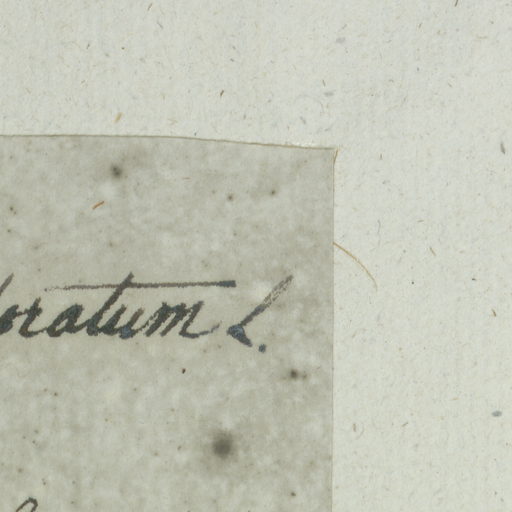 oratum L.